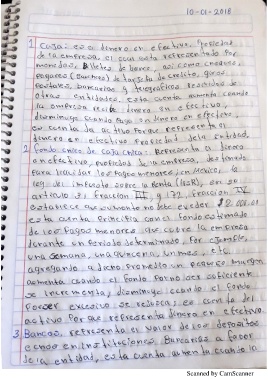 10-01-2018
1. Caja: es el dinero en efectivo, propiedad
de la empresa, el cual esta representado por
monedas, billetes de banco, así como cheques,
pagares (vouchers) de tarjeta de credito, giros
postales, bancarios y telegraficos recibidos de
otras entidades. esta cuenta aumenta cuando
la empresa recibe dinero en efectivo,
disminuye cuando paga en dinero en efectivo
es cuenta de activo porque representa el
dinero en efectivo propiedad de la entidad.
2. fondo fijo de caja chica: Representa el dinero
en efectivo, propiedad de la empresa, destinado
para liquidar los pagos menores; en México, la
ley del impuesto sobre la Renta (ISR), en su
artículo 31 fracción III y 172, fracción IV
establece que su monto no debe exceder $2,001.01
esta cuenta principia con el fondo estimado
de los pagos menores que cubre la empresa
durante un periodo determinado, por ejemplo,
una semana, una quincena, un mes, etc.,
agregando a dicho promedio un pequeño margen
aumenta cuando el fondo por no ser suficiente
se incrementa; disminuye cuando el fondo
por ser excesivo se reduce; es cuenta del
activo por que representa dinero en efectivo.
3. Bancos, representa el valor de los depositos
hechos en instituciones Bancarias a favor
de la entidad, esta cuenta aumenta cuando la
Scanned by CamScanner